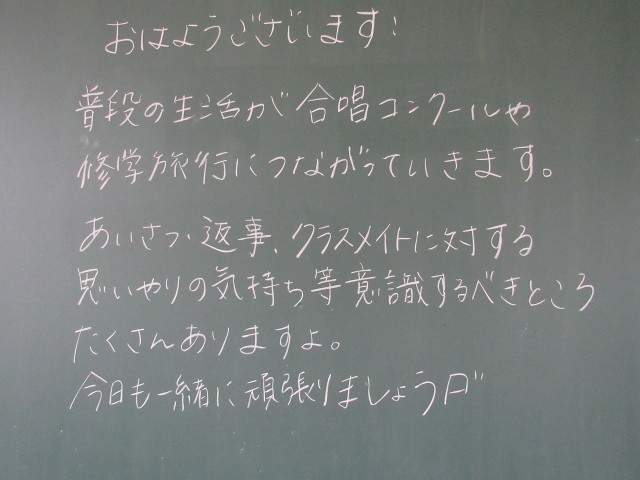 おはようございます!
普段の生活が合唱コンクールや
修学旅行につながっていきます。
あいさつ・返事、クラスメイトに対する
思いやりの気持ち等意識するべきところ
たくさんありますよ。
今日も一緒に頑張りましょう